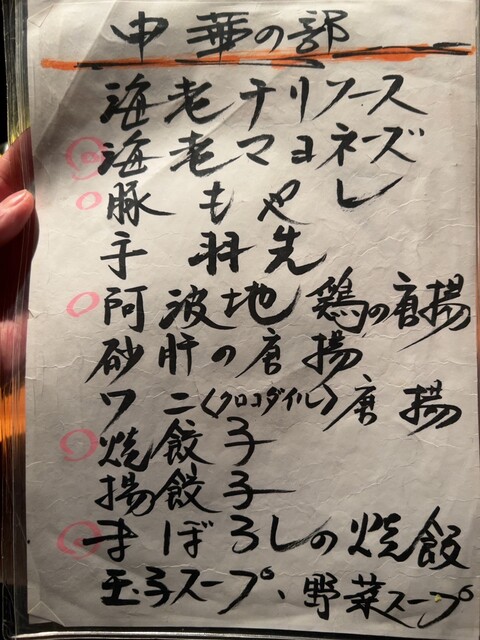 中華の部
海老チリソース
海老マヨネーズ
豚もやし
手羽先
阿波地鶏の唐揚
砂肝の唐揚
ワニ〈クロコダイル〉唐揚
焼餃子
揚餃子
まぼろしの焼餃
玉子スープ、野菜スープ